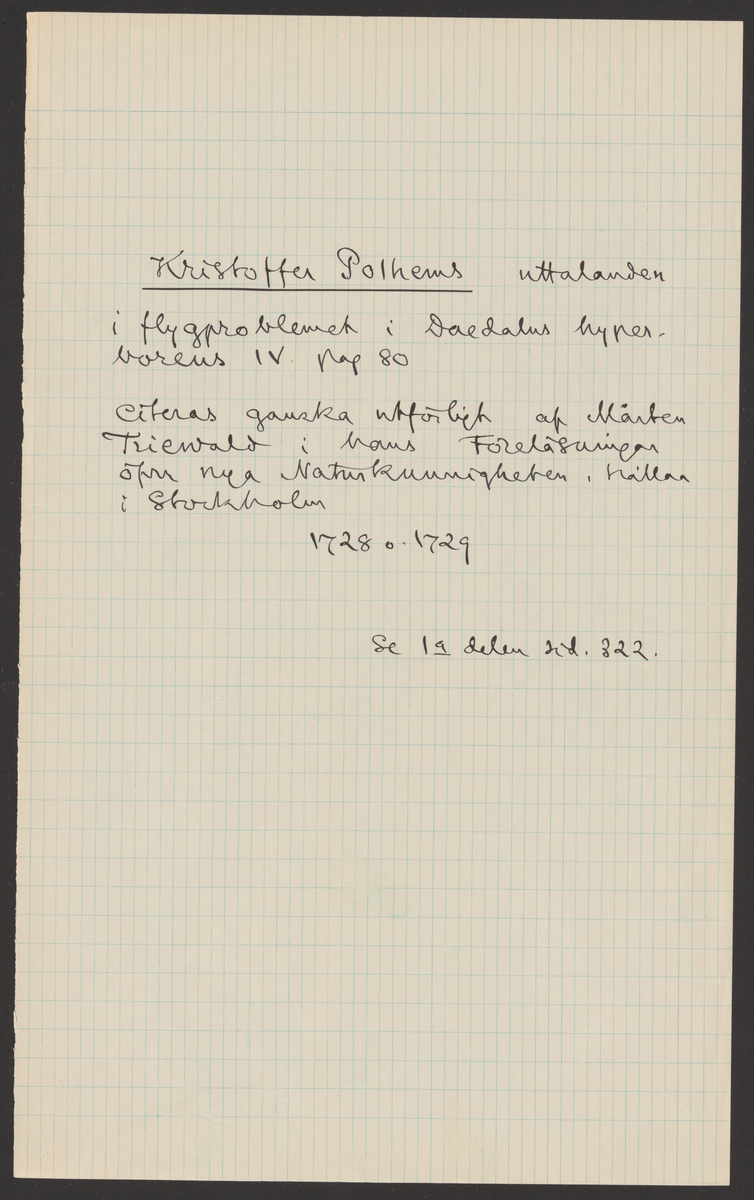 Kristoffer Polhems uttalanden
i flygproblemet i Daedalus hyper-
boreus IV pag 80
Citeras ganska utförligt af Mårten
Triewald i hans Föreläsningar
öfver nya Naturkunnigheten, hållna
i Stockholm
1728 o. 1729
Se 1a delen sid. 322.